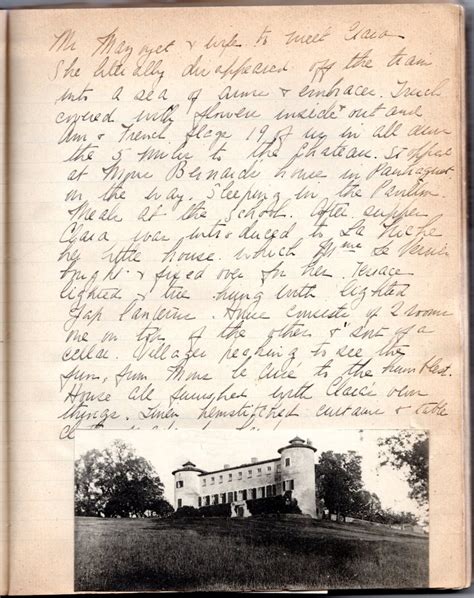 Mr Mayoyet & wife to meet Clara
She literally disappeared off the train
into a sea of arms & embraces. Truck
covered with flowers inside & out and
Am & French flags 19 of us in all drive
the 5 miles to the Chateau. Stopped
at Mme Bernards house in
on the way. Sleeping in the Pavilion
Meals at the School. After supper
Clara was introduced to La Ruche
her little house which Mme Le Verrier
bought & fixed over for her. Terrace
lighted & tree hung with lighted
Jap lanterns. House consists of 2 rooms
one on top of the other & sort of a
cellar. Villagers peeping to see the
fun, from Mons le Curé to the humblest.
House all furnished with Clara's own
things. Linen hemstitched curtains & table